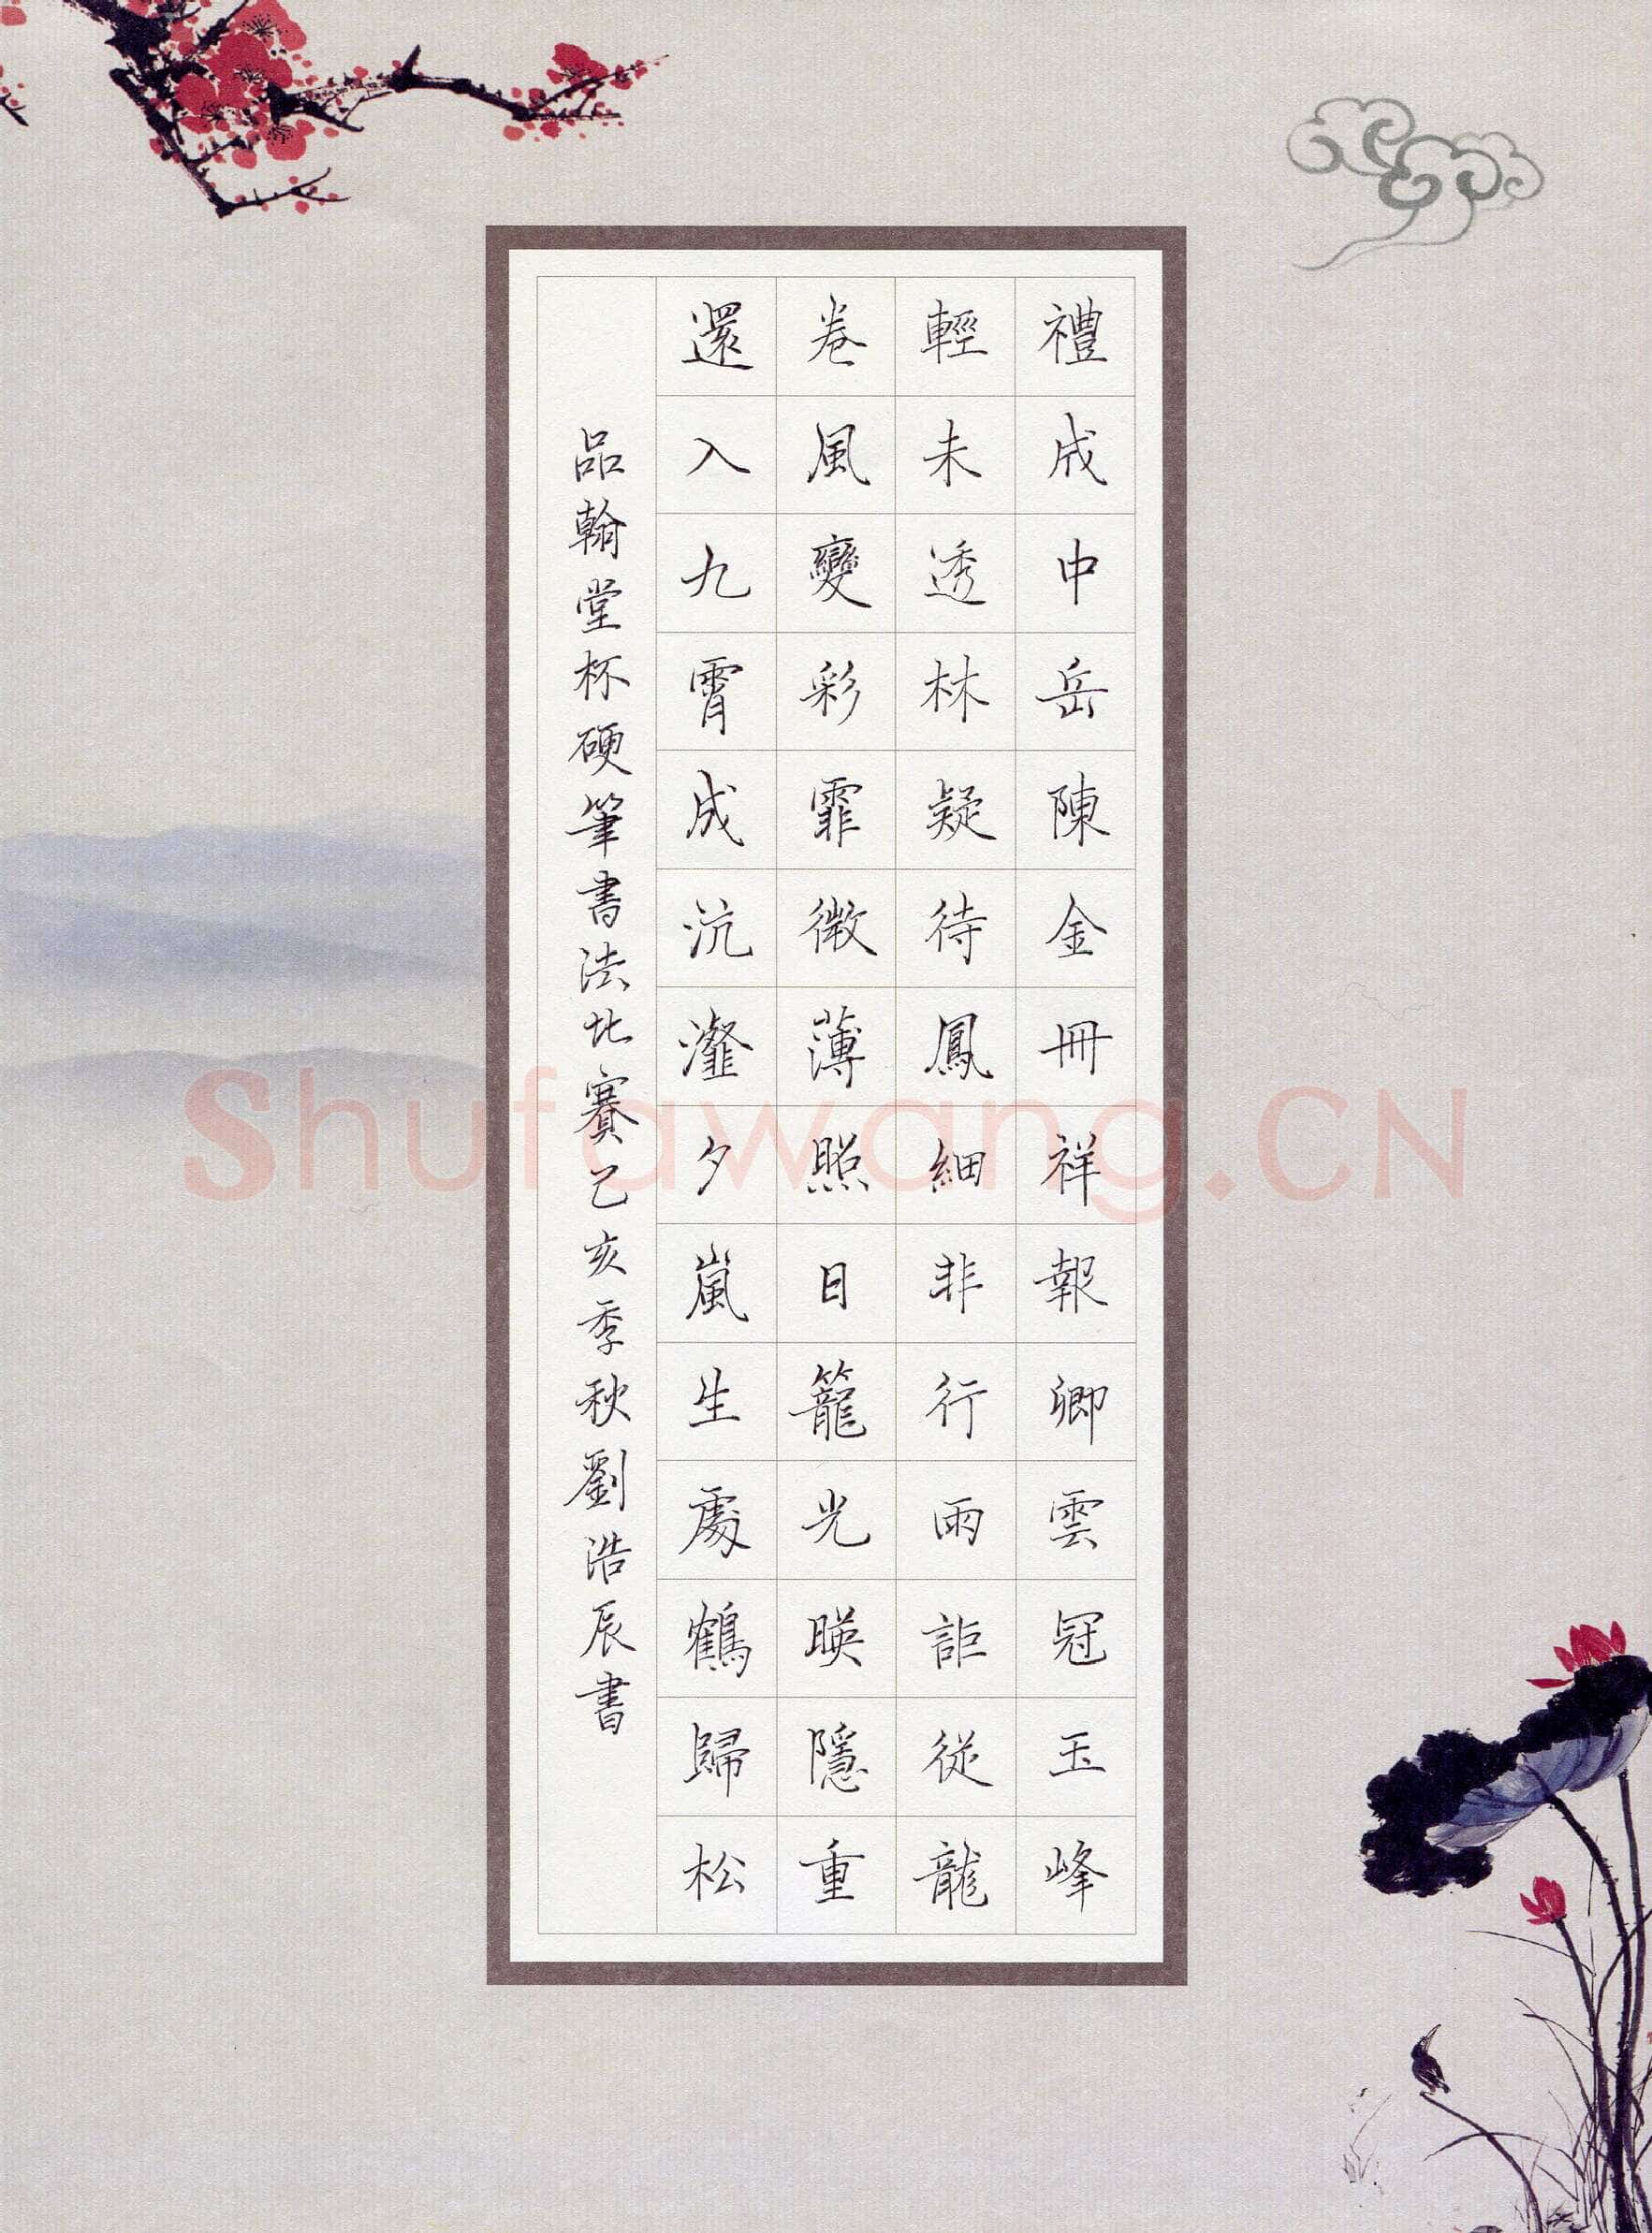 禮成中岳陳金冊祥報卿雲冠玉峰
輕未透林疑待鳳細非行雨詎從龍
卷風變彩霏微薄照日籠光映隱重
還入九霄成沆瀣夕嵐生處鶴歸松
品翰堂杯硬筆書法比賽己亥季秋劉浩辰書
Shufawang.CN